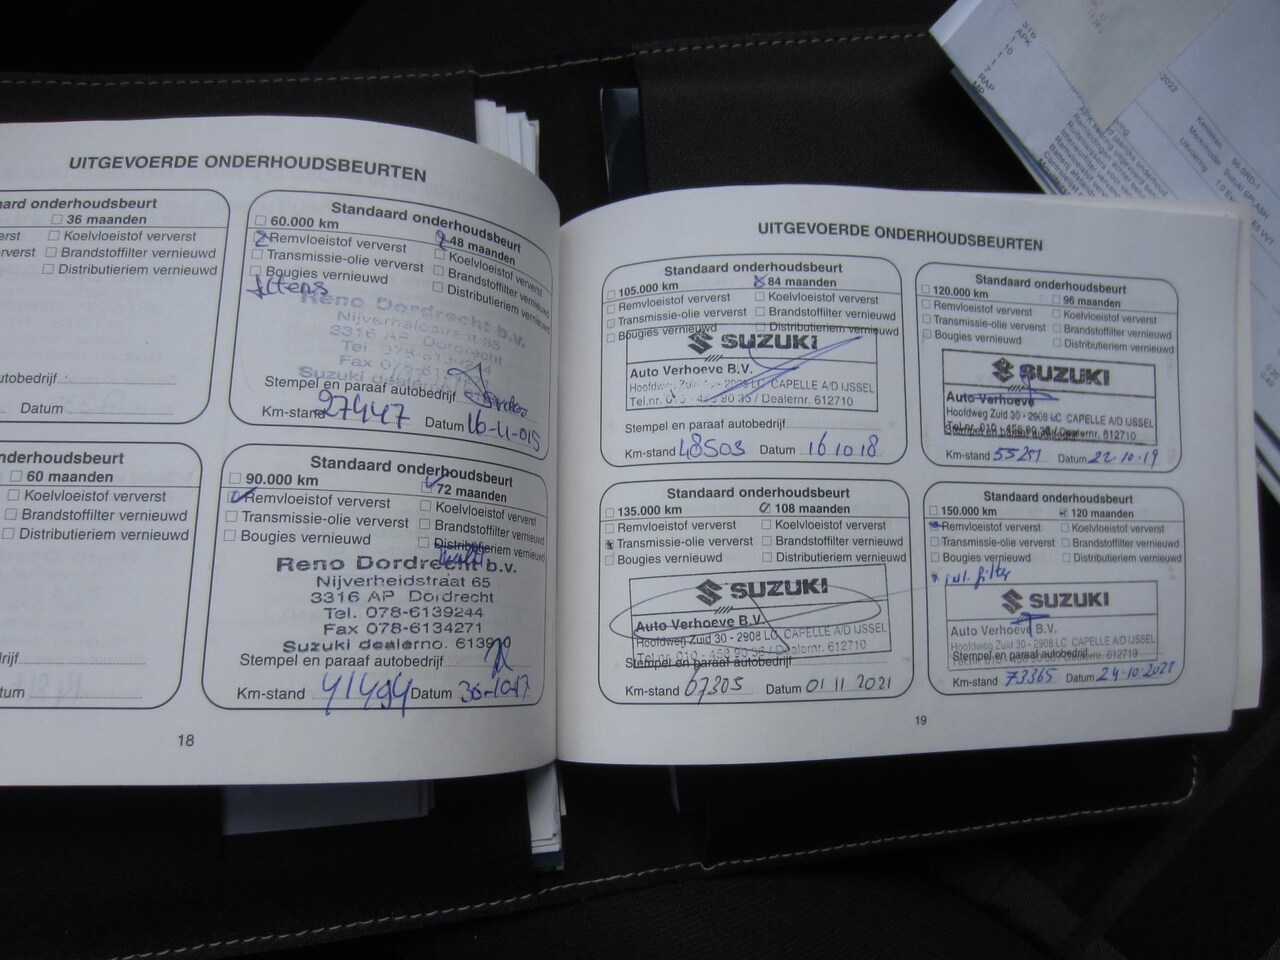 UITGEVOERDE ONDERHOUDSBEURTEN
aard onderhoudsbeurt
☐ 36 maanden
erst ☐ Koelvloeistof ververst
erverst ☐ Brandstoffilter vernieuwd
☐ Distributieriem vernieuwd
utobedrijf
Datum
nderhoudsbeurt
☐ 60 maanden
☐ Koelvloeistof ververst
☐ Brandstoffilter vernieuwd
☐ Distributieriem vernieuwd
rijf
tum
Standaard onderhoudsbeurt
☐ 60.000 km 48 maanden
Remvloeistof ververst ☐ Koelvloeistof ververst
☐ Transmissie-olie ververst ☐ Brandstoffilter vernieuwd
☐ Bougies vernieuwd ☐ Distributieriem vernieuwd
Reno Dordrecht b.v.
Nijverheidsstraat 65
3316 AP Dordrecht
Tel. 078-6139244
Fax 078-6134271
Suzuki dealerno.
Stempel en paraaf autobedrijf
Km-stand 27447 Datum 16-11-015
Standaard onderhoudsbeurt
☐ 90.000 km 72 maanden
Remvloeistof ververst ☐ Koelvloeistof ververst
☐ Transmissie-olie ververst ☐ Brandstoffilter vernieuwd
☐ Bougies vernieuwd ☐ Distributieriem vernieuwd
Reno Dordrecht b.v.
Nijverheidstraat 65
3316 AP Dordrecht
Tel. 078-6139244
Fax 078-6134271
Suzuki dealerno. 613920
Stempel en paraaf autobedrijf
Km-stand 41494 Datum 30-10-17
18
UITGEVOERDE ONDERHOUDSBEURTEN
Standaard onderhoudsbeurt
☐ 105.000 km 84 maanden
☐ Remvloeistof ververst ☐ Koelvloeistof ververst
☐ Transmissie-olie ververst ☐ Brandstoffilter vernieuwd
☐ Bougies vernieuwd ☐ Distributieriem vernieuwd
SUZUKI
Auto Verhoeve B.V.
Hoofdweg Zuid 30 - 2908 LC CAPELLE A/D IJSSEL
Tel.nr. 010 - 458 90 35 / Dealernr. 612710
Stempel en paraaf autobedrijf
Km-stand 48503 Datum 16 10 18
Standaard onderhoudsbeurt
☐ 120.000 km ☐ 96 maanden
☐ Remvloeistof ververst ☐ Koelvloeistof ververst
☐ Transmissie-olie ververst ☐ Brandstoffilter vernieuwd
☐ Bougies vernieuwd ☐ Distributieriem vernieuwd
SUZUKI
Auto Verhoeve
Hoofdweg Zuid 30 - 2908 LC CAPELLE A/D IJSSEL
Tel.nr. 010 - 458 90 35 / Dealernr. 612710
Stempel en paraaf autobedrijf
Km-stand 55251 Datum 22-10-19
Standaard onderhoudsbeurt
☐ 135.000 km 108 maanden
☐ Remvloeistof ververst ☐ Koelvloeistof ververst
Transmissie-olie ververst ☐ Brandstoffilter vernieuwd
☐ Bougies vernieuwd ☐ Distributieriem vernieuwd
SUZUKI
Auto Verhoeve B.V.
Hoofdweg Zuid 30 - 2908 LC CAPELLE A/D IJSSEL
Tel.nr. 010 - 458 90 35 / Dealernr. 612710
Stempel en paraaf autobedrijf
Km-stand 67305 Datum 01 11 2021
Standaard onderhoudsbeurt
☐ 150.000 km 120 maanden
Remvloeistof ververst ☐ Koelvloeistof ververst
☐ Transmissie-olie ververst ☐ Brandstoffilter vernieuwd
☐ Bougies vernieuwd ☐ Distributieriem vernieuwd
* inl. filter
SUZUKI
Auto Verhoeve B.V.
Hoofdweg Zuid 30 - 2908 LC CAPELLE A/D IJSSEL
Stempel en paraaf autobedrijf
Km-stand 73365 Datum 24-10-2022
19
APK
10
RAP
2022
Kenteken 56-SRD-1
Merk/model Suzuki SPLASH
Uitvoering